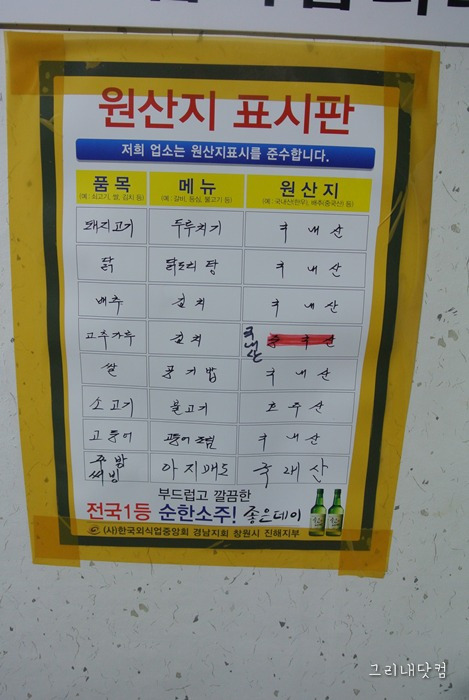 원산지 표시판
저희 업소는 원산지표시를 준수합니다.
품 목 메 뉴 원 산 지
(예 : 쇠고기, 쌀, 김치 등) (예 : 갈비, 등심, 불고기 등) (예 : 국내산(한우), 배추(중국산) 등)
돼지고기 두루치기 국 내 산
닭 닭도리 탕 국 내 산
배추 김치 국 내 산
고추가루 김치 국내산 중 국 산
쌀 공기밥 국 내 산
소고기 불고기 호 주 산
고등어 고등어 조림 국 내 산
주방 써빙 아지매도 국 래 산
부드럽고 깔끔한
전국1등 순한소주! 좋은데이
(사)한국외식업중앙회 경남지회 창원시 진해지부
그리내닷컴